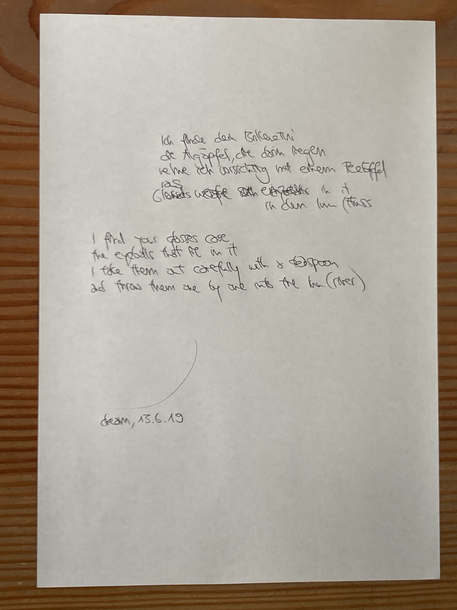 Ich finde dein Brillenetui
die Augäpfel, die darin liegen
nehme ich vorsichtig mit einem Teelöffel
raus
werfe in
in den Inn (Fluss
I find your glasses case
the eyeballs that lie in it
I take them out carefully with a teaspoon
and throw them one by one into the Inn (river)
dream, 13.6.19